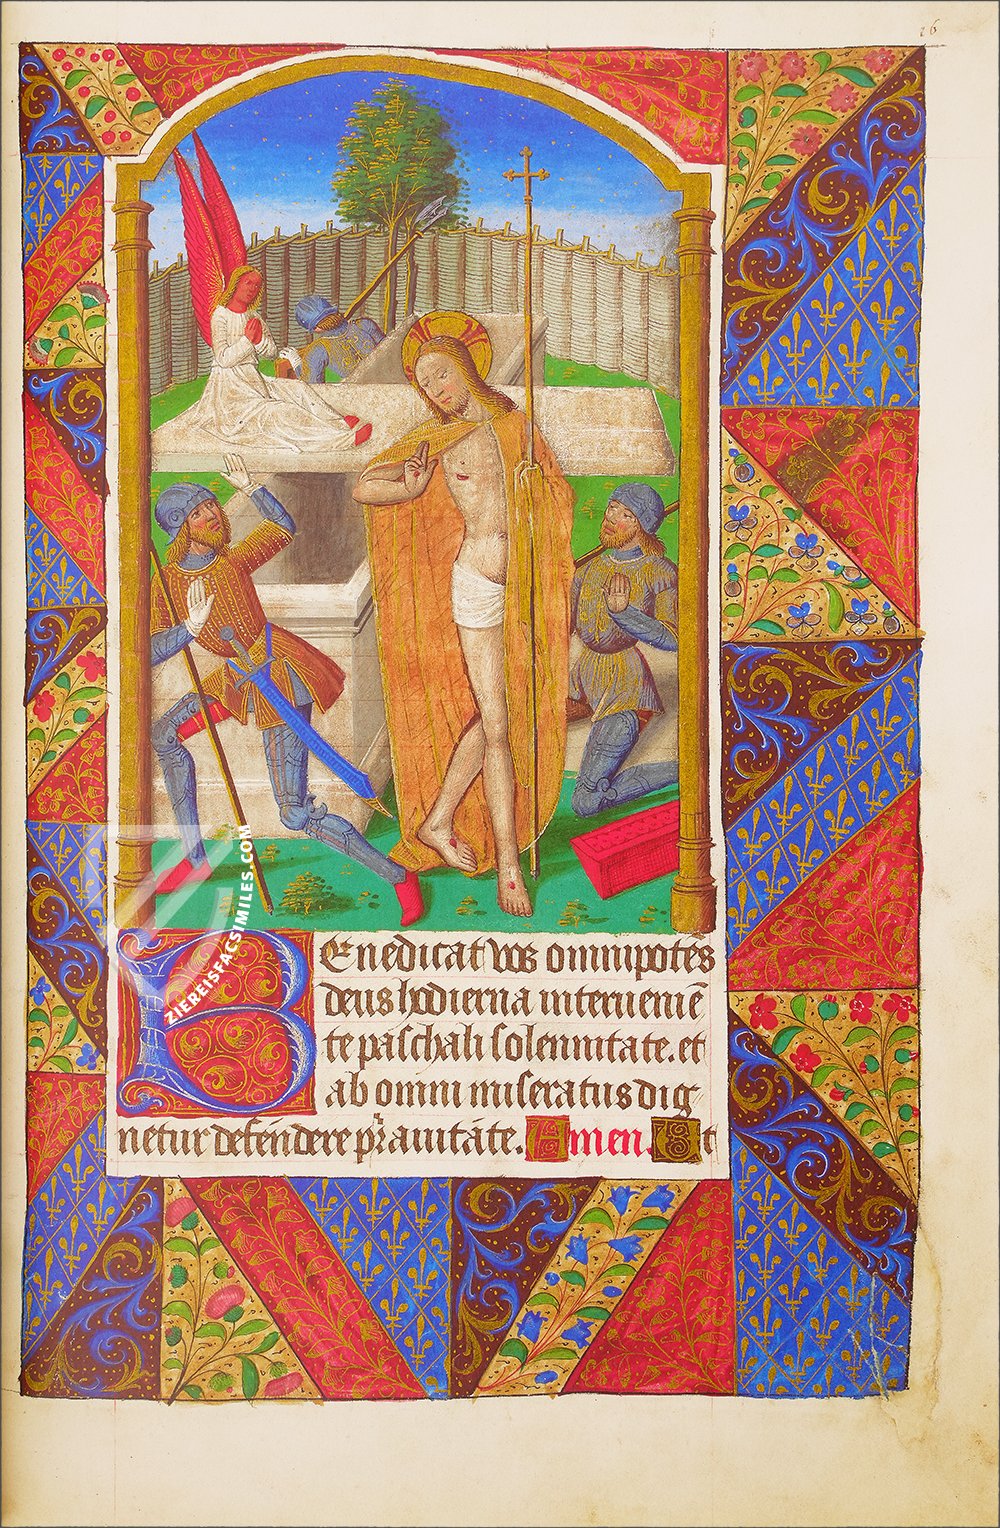 16
Benedicat vos omnipotēs
deus hodierna interveniē
te paschali solennitate. et
ab omni miseratus dig
netur defendere prauitate. Amen. Ut
ZIEREISFACSIMILES.COM